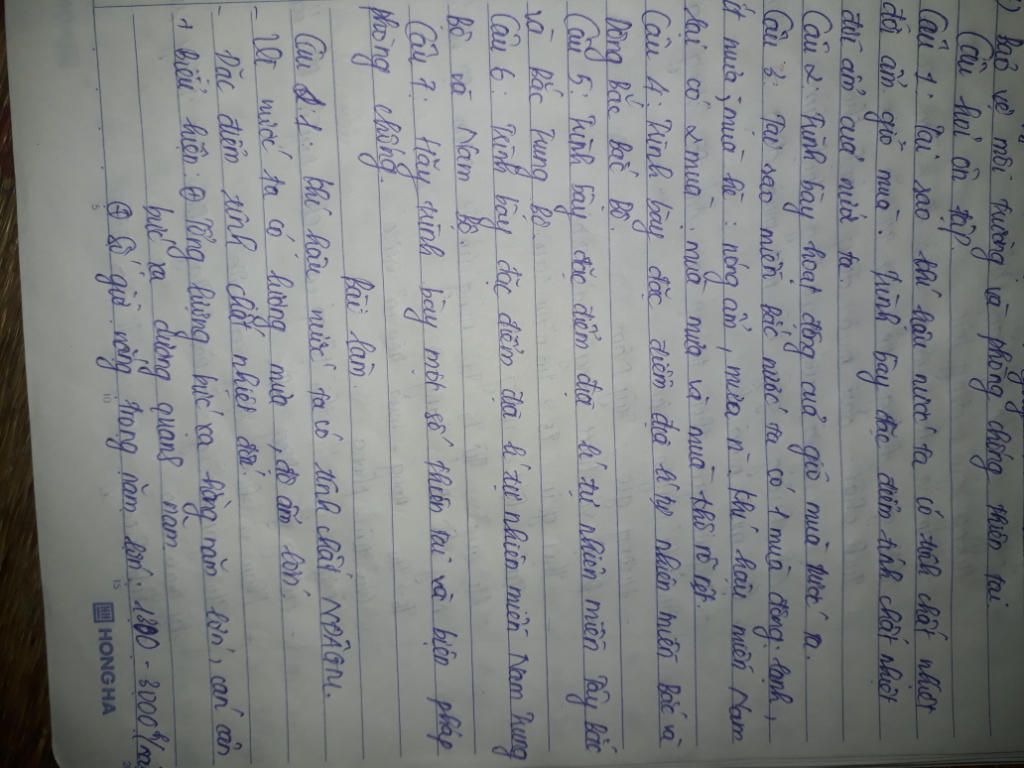 Bảo vệ môi trường và phòng chống thiên tai.
Câu hỏi ôn tập
Câu 1. Tại sao khí hậu nước ta có tính chất nhiệt
đới ẩm gió mùa. Trình bày đặc điểm tính chất nhiệt
đới ẩm của nước ta
Câu 2. Trình bày hoạt động của gió mùa nước ta.
Câu 3. Tại sao miền Bắc nước ta có 1 mùa đông lạnh,
ít mưa, mùa hè: nóng ẩm, mưa n khí hậu miền Nam
lại có 2 mùa: mùa mưa và mùa khô rõ rệt.
Câu 4. Trình bày đặc điểm địa lí tự nhiên miền Bắc và
Đông Bắc Bắc Bộ.
Câu 5. Trình bày đặc điểm địa lí tự nhiên miền Tây Bắc
và Bắc Trung Bộ.
Câu 6. Trình bày đặc điểm địa lí tự nhiên miền Nam Trung
Bộ và Nam Bộ.
Câu 7. Hãy trình bày một số thiên tai và biện pháp
phòng chống.
Bài làm
Câu 1: khí hậu nước ta có tính chất NĐÂGM.
- Vì nước ta có lượng mưa, độ ẩm lớn
- Đặc điểm tính chất nhiệt đới
+ Biểu hiện: Tổng lượng bức xạ hàng năm lớn, cán cân
bức xạ dương quanh năm
+ Số giờ nắng trong năm lớn: 1400 - 3000
HONGHA